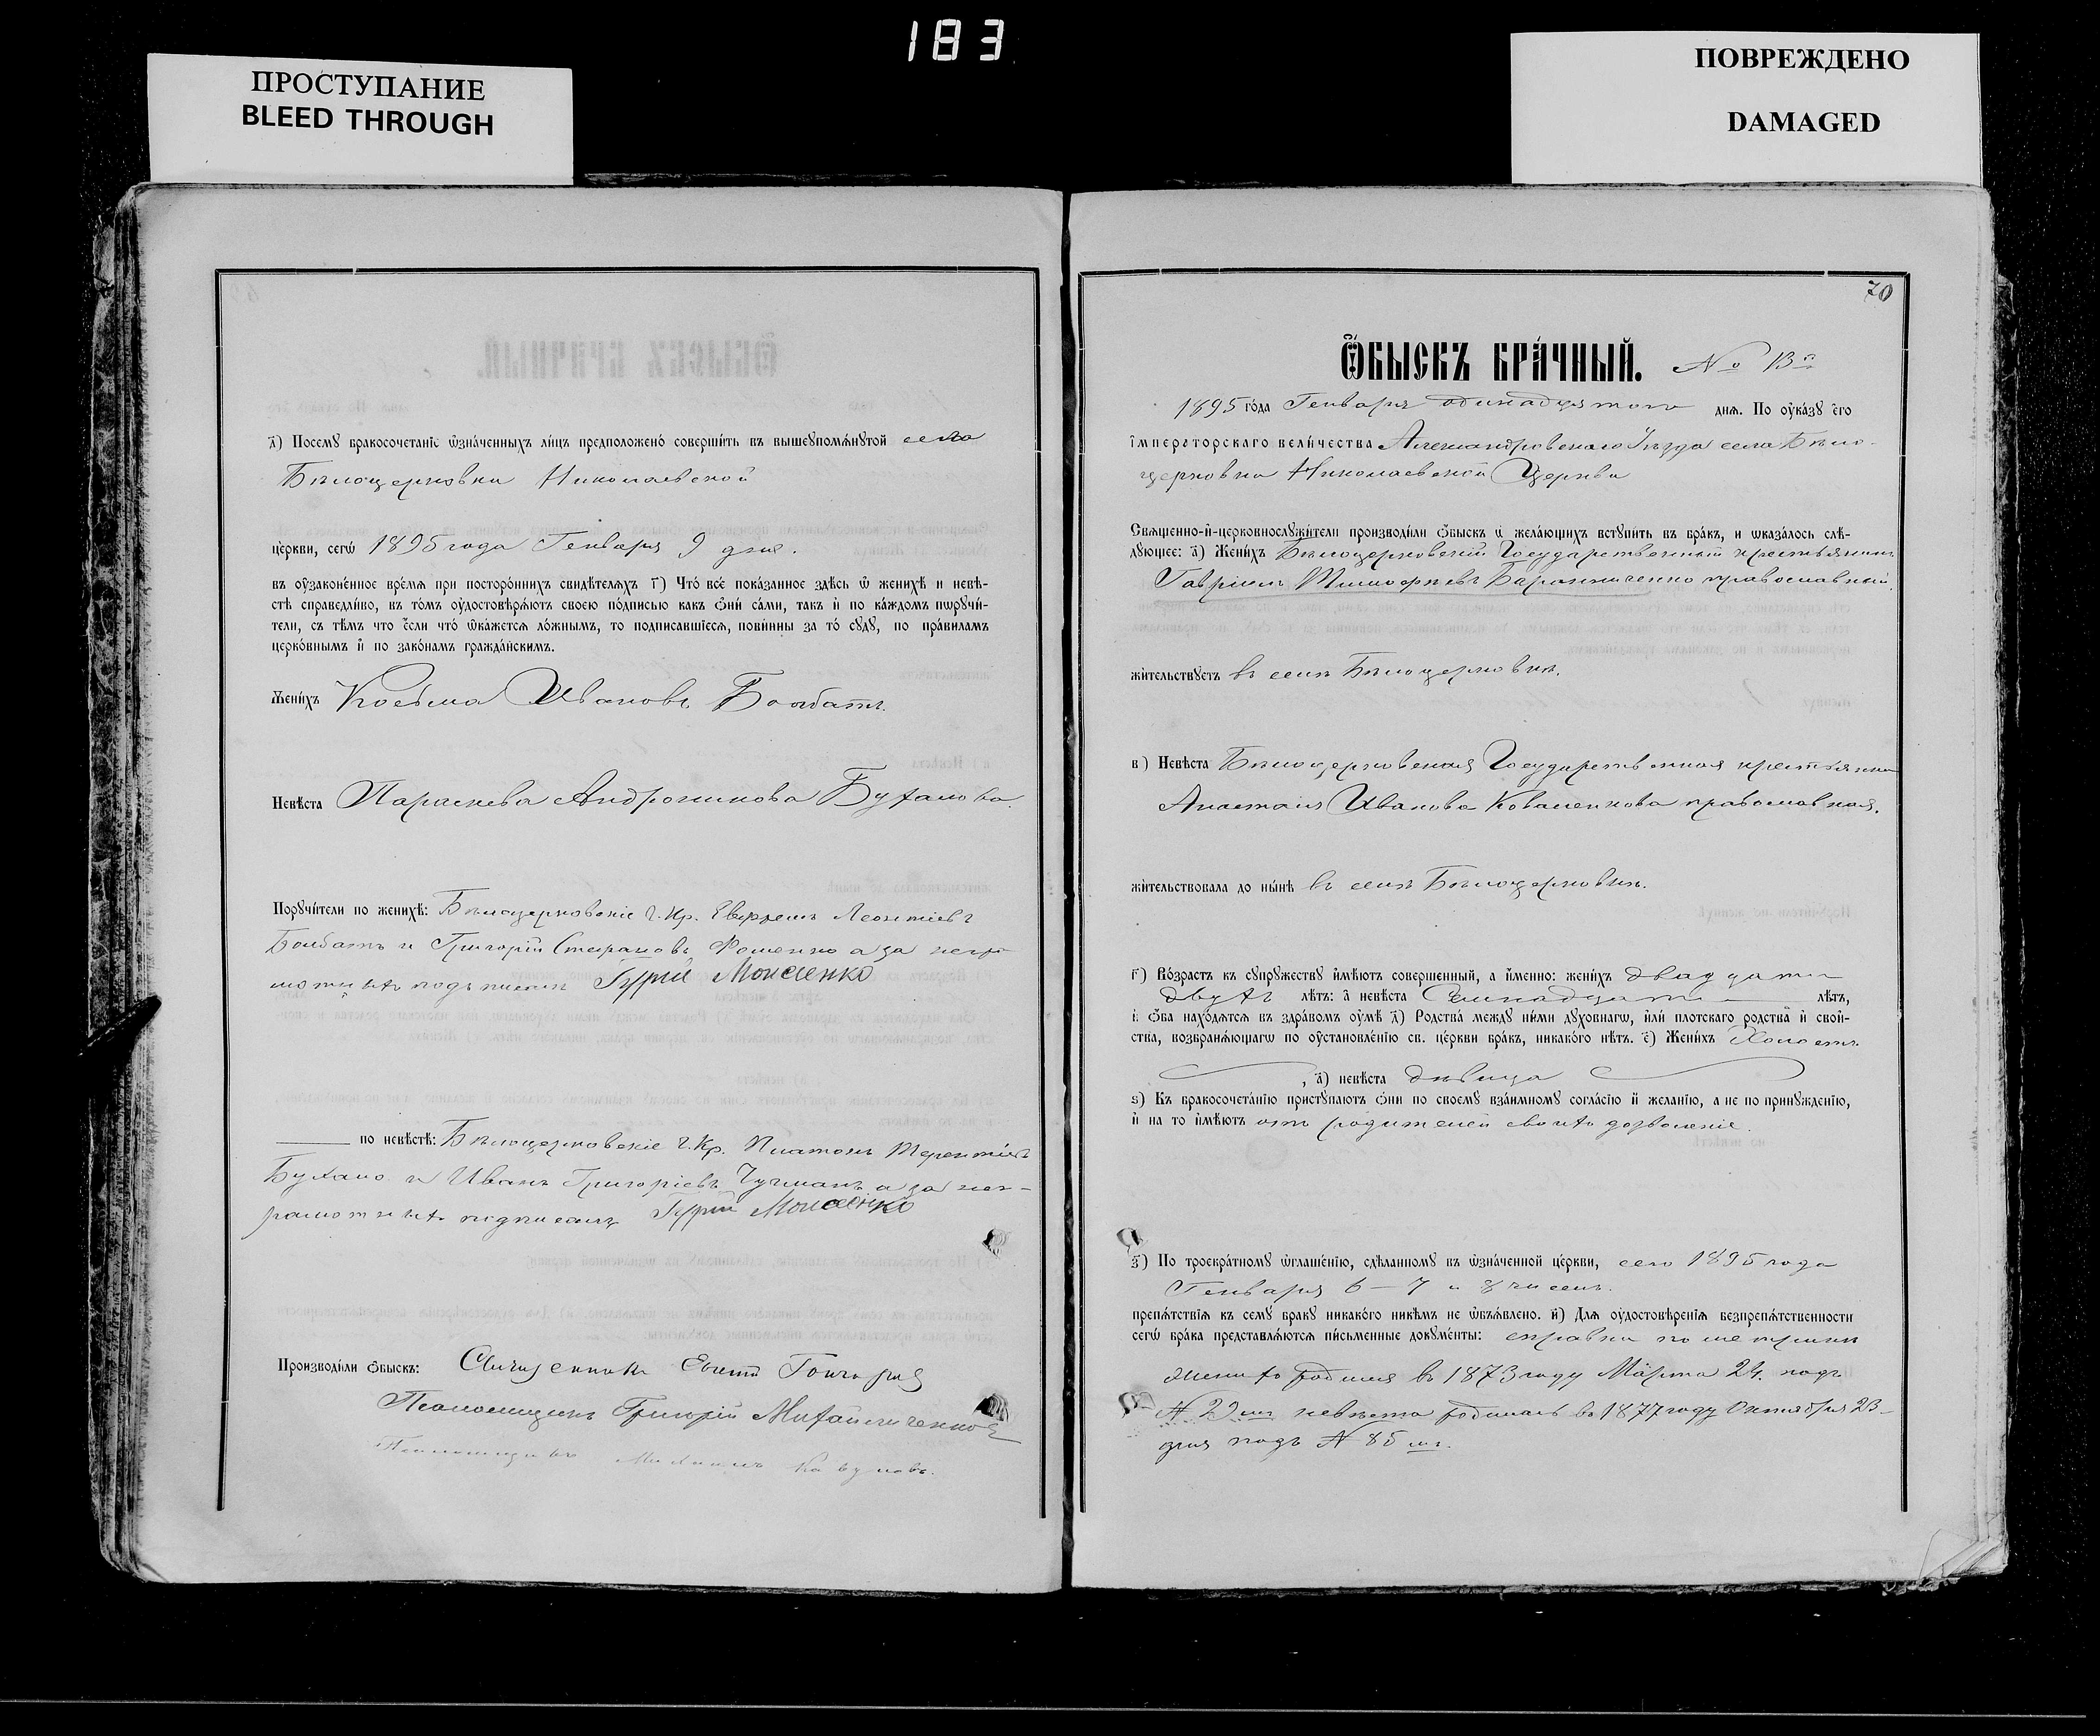 183
ПРОСТУПАНИЕ
BLEED THROUGH
ПОВРЕЖДЕНО
DAMAGED
д҃) Посемꙋ бракосочетанїе ѡзначенныхъ лицъ предположено совершить въ вышеꙋпомѧнꙋтой села
Бѣлоцерковки Николаевской
церкви, сегѡ 1895 года Генваря 9 дня.
въ оузаконенное время при постороннихъ свидѣтеляхъ г҃) Что все показанное здѣсь ѿ женихѣ и невѣ-
стѣ справедливо, въ томъ оудостовѣряютъ своею подписью какъ ѻни сами, такъ и по каждомъ порꙋчи-
тели, съ тѣмъ что если что ѡкажется ложнымъ, то подписавшїеся, повинны за то сꙋдꙋ, по правиламъ
церковнымъ и по законамъ гражданскимъ.
Женихъ Косьма Ивановъ Болбатъ.
Невѣста Параскева Андроникова Бухалова.
Порꙋчители по женихѣ: Бѣлоцерковскіе Г. Кр. Евфремъ Леонтіевъ
Болбатъ и Григорій Стефановъ Фоменко а за негра-
мотныхъ подписалъ Гурій Моисеенко
по невѣстѣ: Бѣлоцерковскіе Г. Кр. Платонъ Терентіевъ
Бухало и Иванъ Григоріевъ а за нег-
рамотныхъ подписалъ Гурій Моисеенко
Производили ѻбыскъ: Священникъ Гончаровъ
Псаломщикъ Григорій Михайличенко
Псаломщикъ Михаилъ
70
ѺБЫСКЪ БРАЧНЫЙ. № 13й
1895 года Генваря одинадцятого дня. По оуказꙋ его
императорскаго величества Александровскаго Уѣзда села Бѣло-
церковки Николаевской Церкви
Священно-и-церковнослꙋжители производили ѻбыскъ ѡ желающихъ встꙋпить въ бракъ, и ѡказалось слѣ-
дꙋющее: а҃) Женихъ Бѣлоцерковскій Государственный крестьянинъ
Гавріилъ Тимофѣевъ православный.
жительствꙋетъ въ селѣ Бѣлоцерковкѣ.
в҃) Невѣста Бѣлоцерковская Государственная крестьянка
Анастасія Иванова Коваленкова православная.
жительствовала до нынѣ въ селѣ Бѣлоцерковкѣ.
г҃) Возрастъ къ сꙋпрꙋжествꙋ имѣютъ совершенный, а именно: женихъ двадцати
двухъ лѣтъ: а невѣста Семнадцати лѣтъ,
и ѻба находятся въ здравомъ оумѣ д҃) Родства междꙋ ними дꙋховнагѡ, или плотскаго родства и свой-
ства, возбраняющагѡ по оустановленїю св. церкви бракъ, никакого нѣтъ. е҃) Женихъ Холостъ
, а҃) невѣста дѣвица
ѕ҃) Къ бракосочетанїю пристꙋпаютъ ѻни по своемꙋ взаимномꙋ согласїю и желанїю, а не по принꙋжденїю,
и на то имѣютъ отъ родителей своихъ дозволеніе.
з҃) По троекратномꙋ ѡглашенїю, сдѣланномꙋ въ ѡзначенной церкви, сего 1895 года
Генваря 6 – 7 и 8 числъ.
препятствїя къ семꙋ бракꙋ никакого никѣмъ не ѡбъявлено. и҃) Для оудостовѣренїя безпрепятственности
сегѡ брака представляются письменные докꙋменты: справки по метрикѣ
женихъ родился въ 1873 году Марта 24. подъ
№ 29мъ невѣста родилась въ 1877 году Октября 23-
дня подъ № 85мъ.